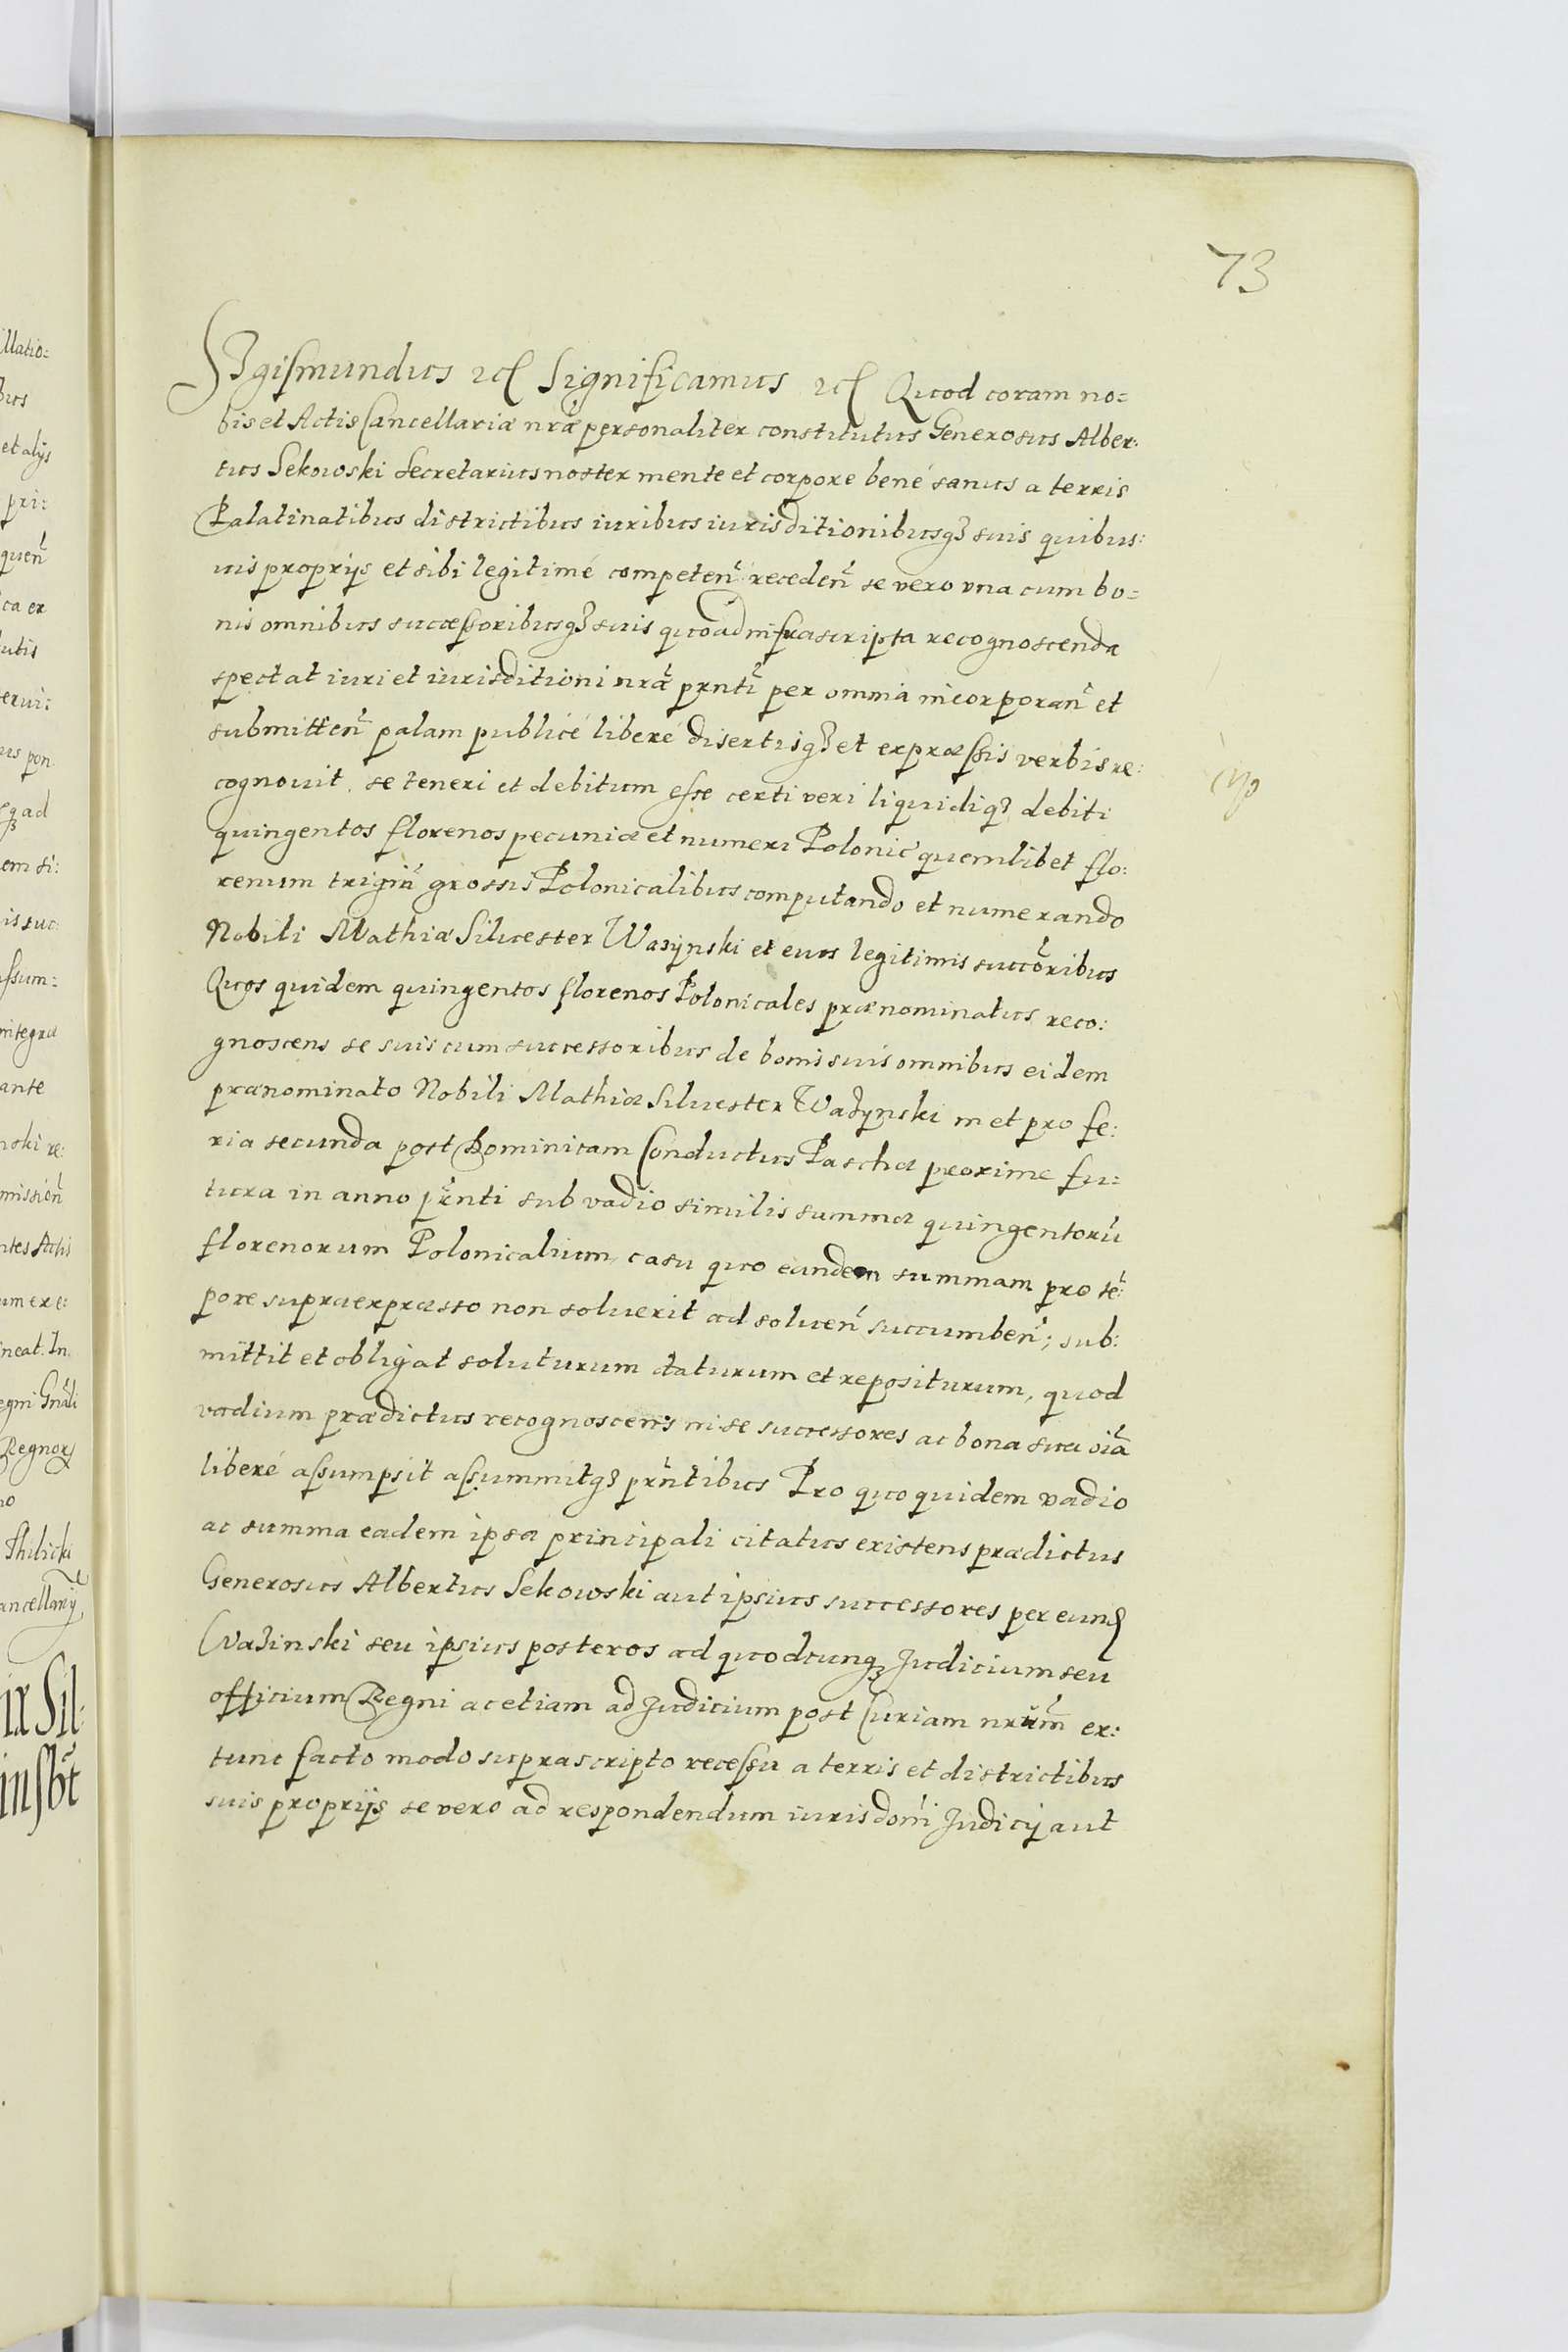 73
Sigismundus etc Significamus etc Quod coram no=
bis et Actis Cancellariæ nræ personaliter constitutus Generosus Alber:
tus Sekowski Secretarius noster mente et corpore bené sanus a terris
Palatinatibus districtibus iuribus iurisditionibusq3 suis quibus:
uis proprijs et sibi legitimé competen̄ receden̄ se vero vna cum bo=
nis omnibus successoribusq3 suis quoad infrascripta recognoscenda
spectat iuri et iurisditioni nræ prnti per omnia incorporan̄ et
submitten̄ palam publicé liberé disertisq3 et expræssis verbis re:
cognouit, se teneri et debitum esse certi veri liquidiq3 debiti
quingentos florenos pecuniæ et numeri Polonic̄ quemlibet flo:
renum trigin̄ grossis Polonicalibus computando et numerando
Nobili Mathiæ Siluester Wazynski et eius legitimis succoribus
Quos quidem quingentos florenos Polonicales prænominatus reco:
gnoscens se suis cum successoribus de bonis suis omnibus eidem
prænominato Nobili Mathiæ Siluester Wazynski in et pro fe:
ria secunda post Dominicam Conductus Paschæ proxime fu:
tura in anno prnti sub vadio similis summæ quingentorū
florenorum Polonicalium, casu quo eandem summam pro tē:
pore supraexpræsso non soluerit ad soluen̄ succumben̄; sub:
mittit et obligat soluturum daturum et repositurum, quod
vadium prædictus recognoscens in se successores ac bona sua oīa
liberé assumpsit assummitq3 prntibus Pro quo quidem vadio
ac summa eadem ipsa principali citatus existens prædictus
Generosus Albertus Sekowski aut ipsius successores per eund
Wazinski seu ipsius posteros ad quodcunq3 Judicium seu
officium Regni ac etiam ad Judicium post Curiam nram̄ ex:
tunc facto modo suprascripto recessu a terris et districtibus
suis proprijs se vero ad respondendum iurisdoni Judicij aut